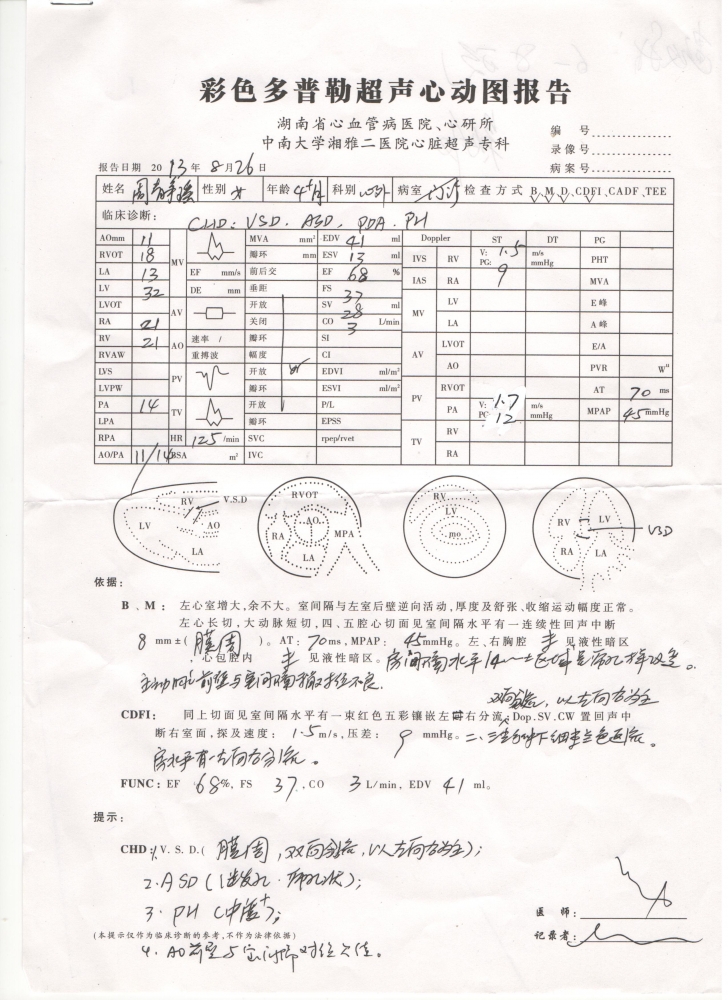 彩色多普勒超声心动图报告
湖南省心血管病医院、心研所
中南大学湘雅二医院心脏超声专科
编 号
录像号
病案号
报告日期 2013年8月26日
姓名 性别 女 年龄 4+月 科别 病室 检查方式 B、M、D、CDFI、CADF、TEE
临床诊断： CHD: VSD. ASD, PDA. PH
AOmm 11 MV MVA mm² EDV 41 ml Doppler ST DT PG
RVOT 18 瓣环 mm ESV 13 ml IVS RV V: 1.5 m/s PG: 9 mmHg PHT
LA 13 EF mm/s 前后交 EF 68 % IAS RA MVA
LV 32 DE mm 垂距 FS 37 MV LV E峰
LVOT AV 开放 SV 28 ml LA A峰
RA 21 关闭 CO 3 L/min AV LVOT E/A
RV 21 AO 速率 / 瓣环 SI AO PVR W"
RVAW 重搏波 幅度 CI
IVS PV 开放 EDVI ml/m² PV RVOT AT 70 ms
LVPW 瓣环 ESVI ml/m² PA V: 1.7 m/s PG 12 mmHg MPAP 45 mmHg
PA 14 TV 开放 P/L TV RV
LPA 瓣环 EPSS RA
RPA HR 125 /min SVC rpep/rvet
AO/PA 11/14 BSA m² IVC
RV V.S.D LV AO LA
RVOT AO RA MPA LA
RV LV mo
RV LV VSD RA LA
依据：
B、M： 左心室增大,余不大。室间隔与左室后壁逆向活动,厚度及舒张、收缩运动幅度正常。
左心长切,大动脉短切,四、五腔心切面见室间隔水平有一连续性回声中断
8 mm±(膜周)。AT: 70ms,MPAP: 45mmHg。左、右胸腔 未 见液性暗区
，心包腔内 未 见液性暗区。房间隔水平
主动脉前壁与室间隔对位不良.
双向分流，以左向右为主
CDFI： 同上切面见室间隔水平有一束红色五彩镶嵌左 右分流,Dop.SV.CW 置回声中
断右室面,探及速度: 1.5m/s,压差: 9 mmHg。二、三尖瓣下细束兰色返流。
房水平有一左向右分流。
FUNC：EF 68%, FS 37,CO 3 L/min, EDV 41 ml。
提示：
CHD: 1.V.S.D.(膜周,双向分流,以左向右为主);
2.ASD(
3. PH (中度+);
医 师：
(本提示仅作为临床诊断的参考,不作为法律依据)
记录者：
4. AO前壁与室间隔对位欠佳。